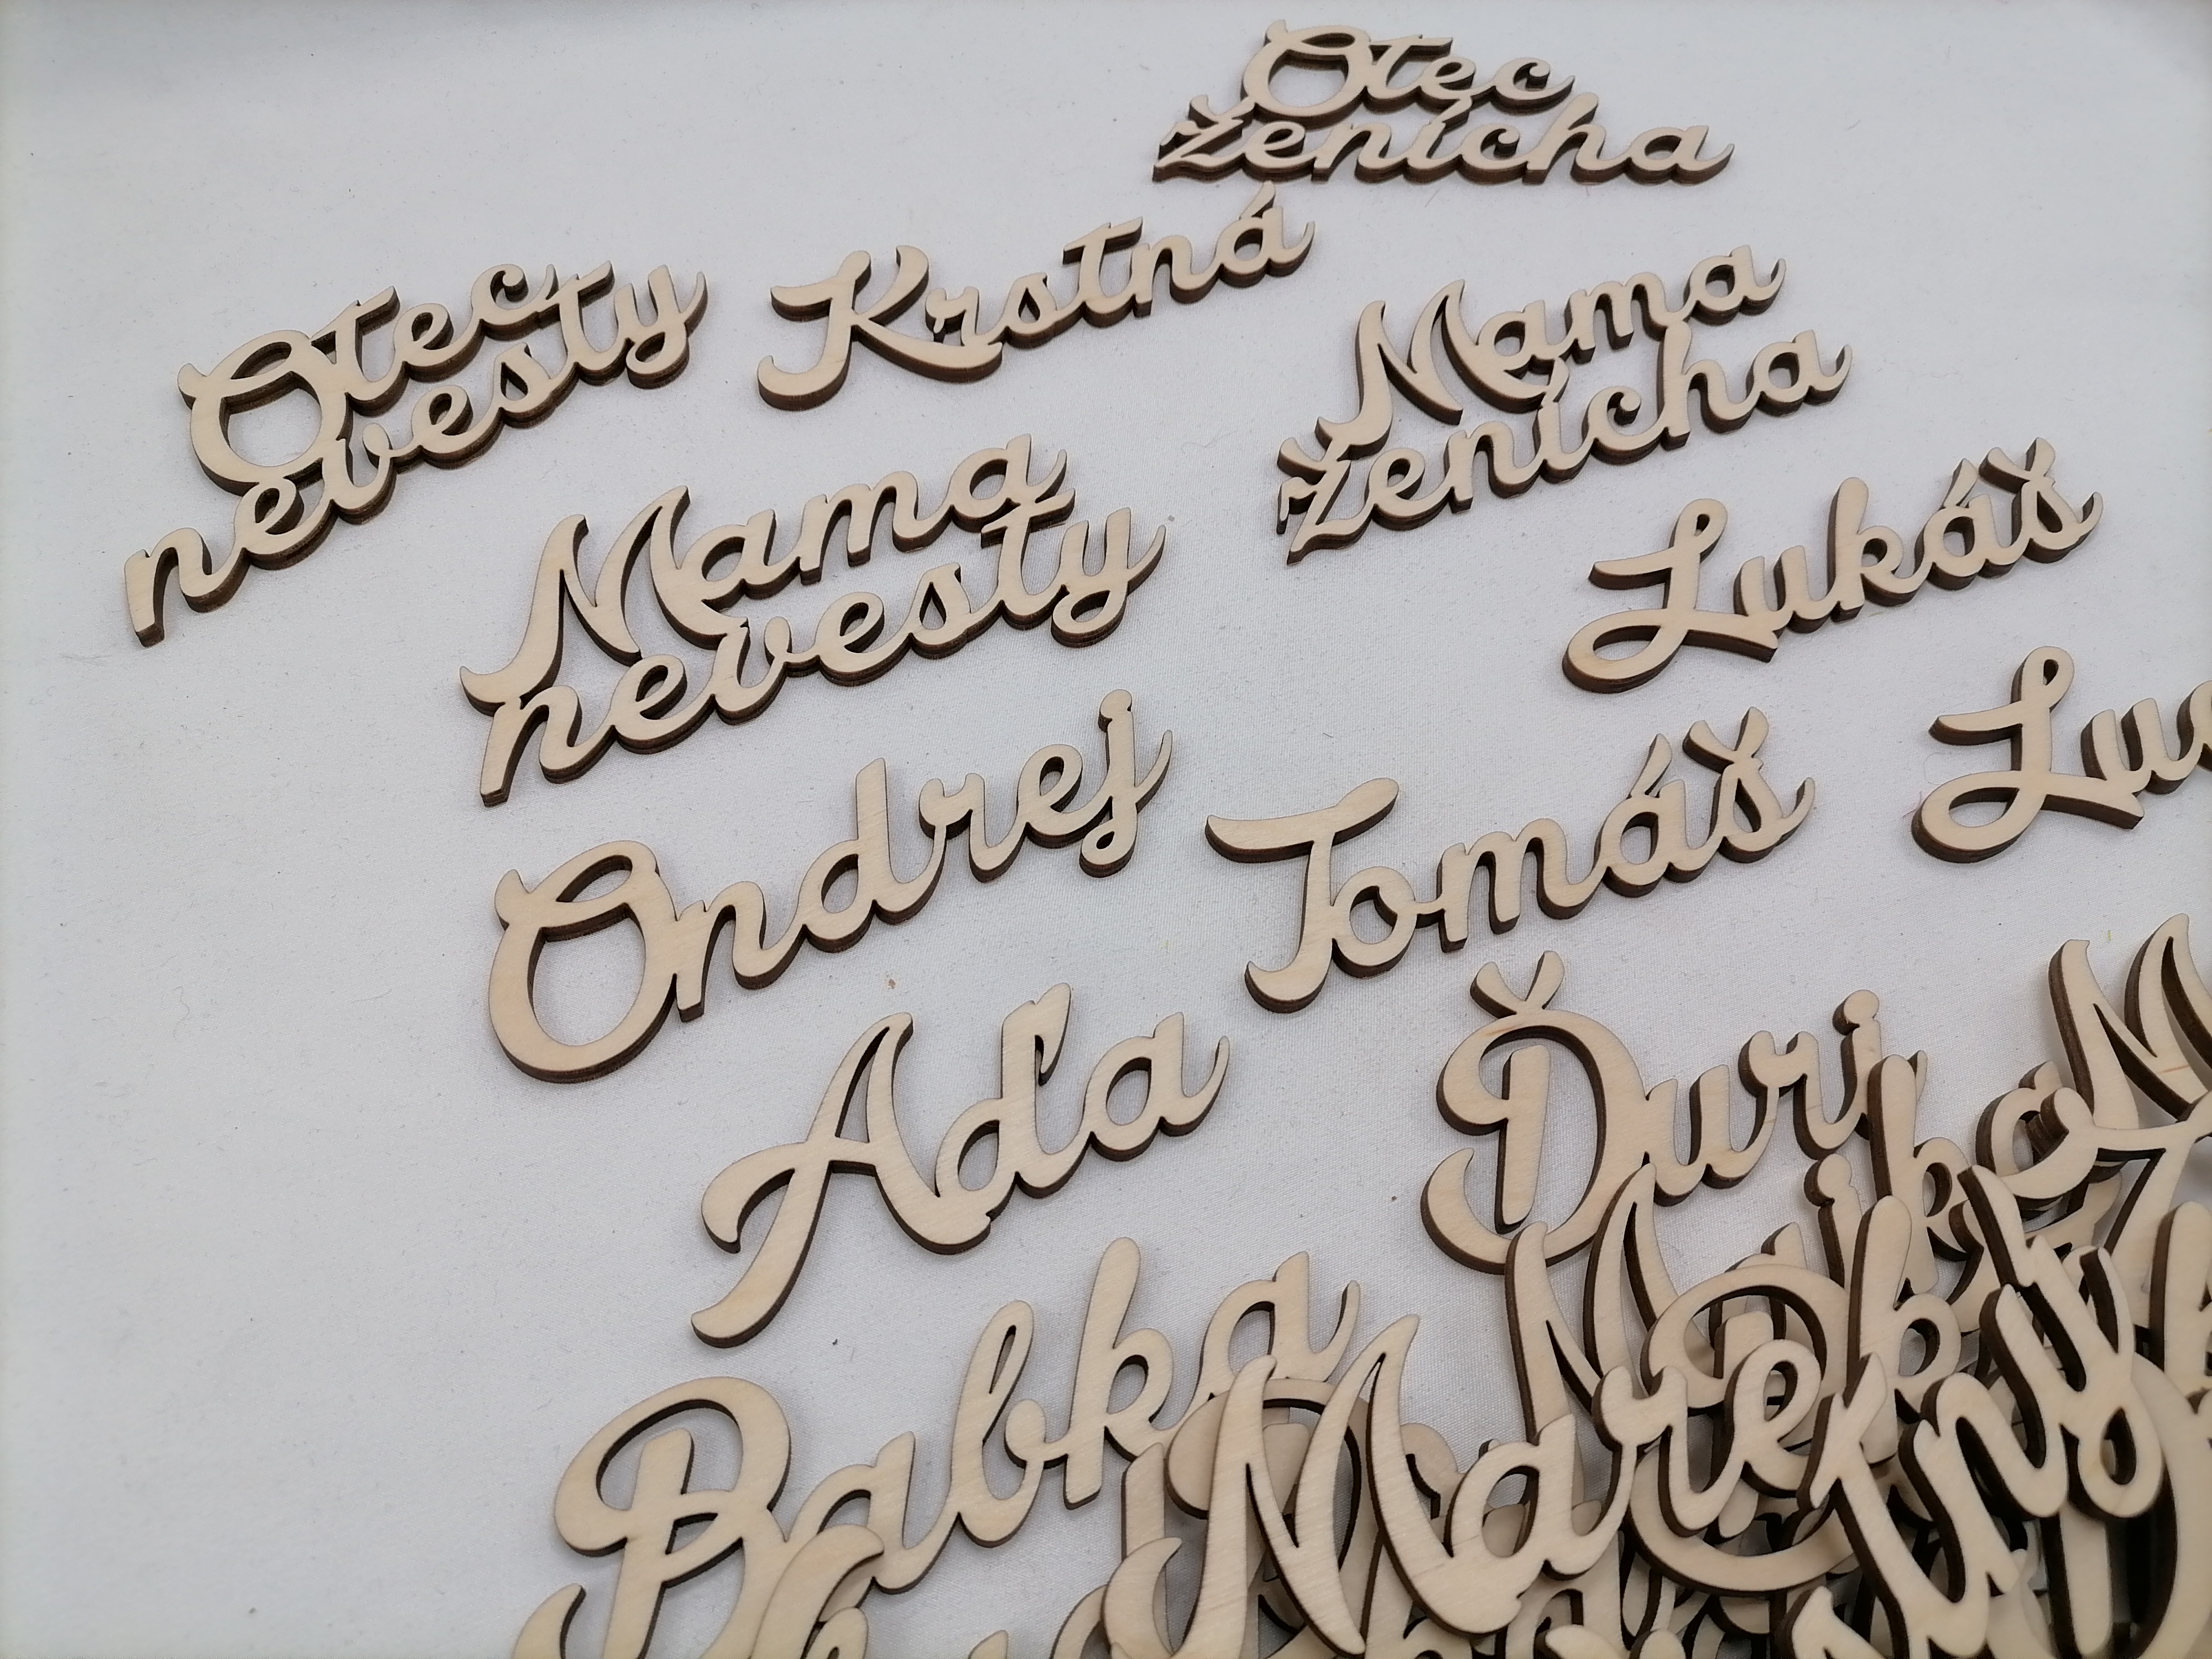 Otec
ženícha
Otec
nevesty
Krstná
Mama
ženícha
Mama
nevesty
Lukáš
Ondrej
Tomáš
Aďa
Ďuri
Babka
Marek